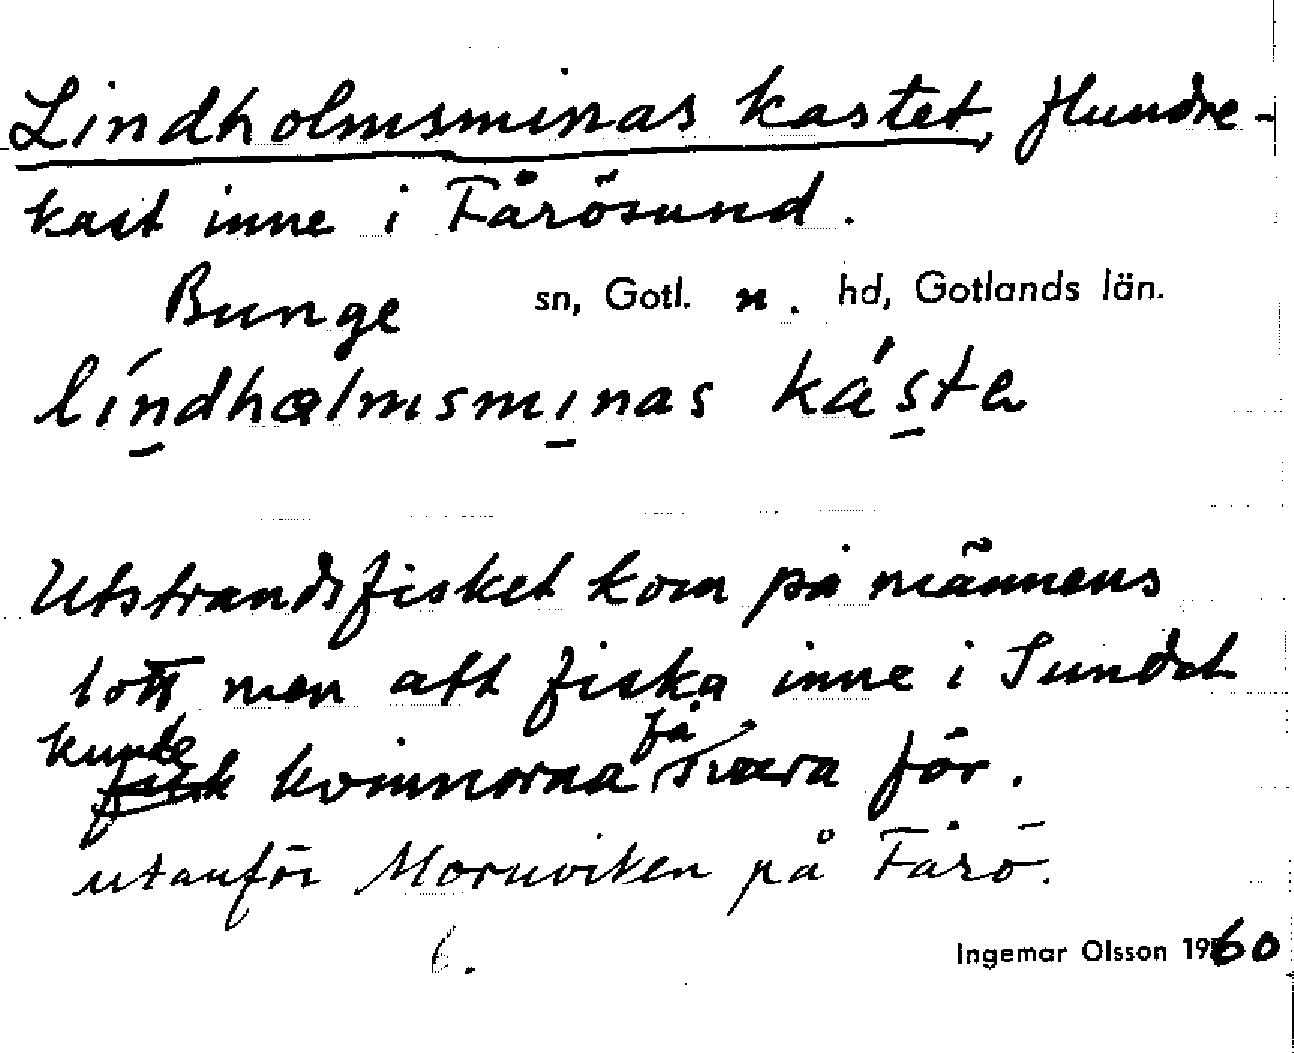 Lindholmsminas kastet, flundre-
kast inne i Fårösund.
Bunge sn, Gotl. n. hd, Gotlands län.
líndhælmsmınas ká'sta
Utstrandsfisket kom på männens
lott men att fiska inne i Sundet
kunde fick kvinnorna få svara för.
utanför Moruviken på Fårö.
6.
Ingemar Olsson 1960